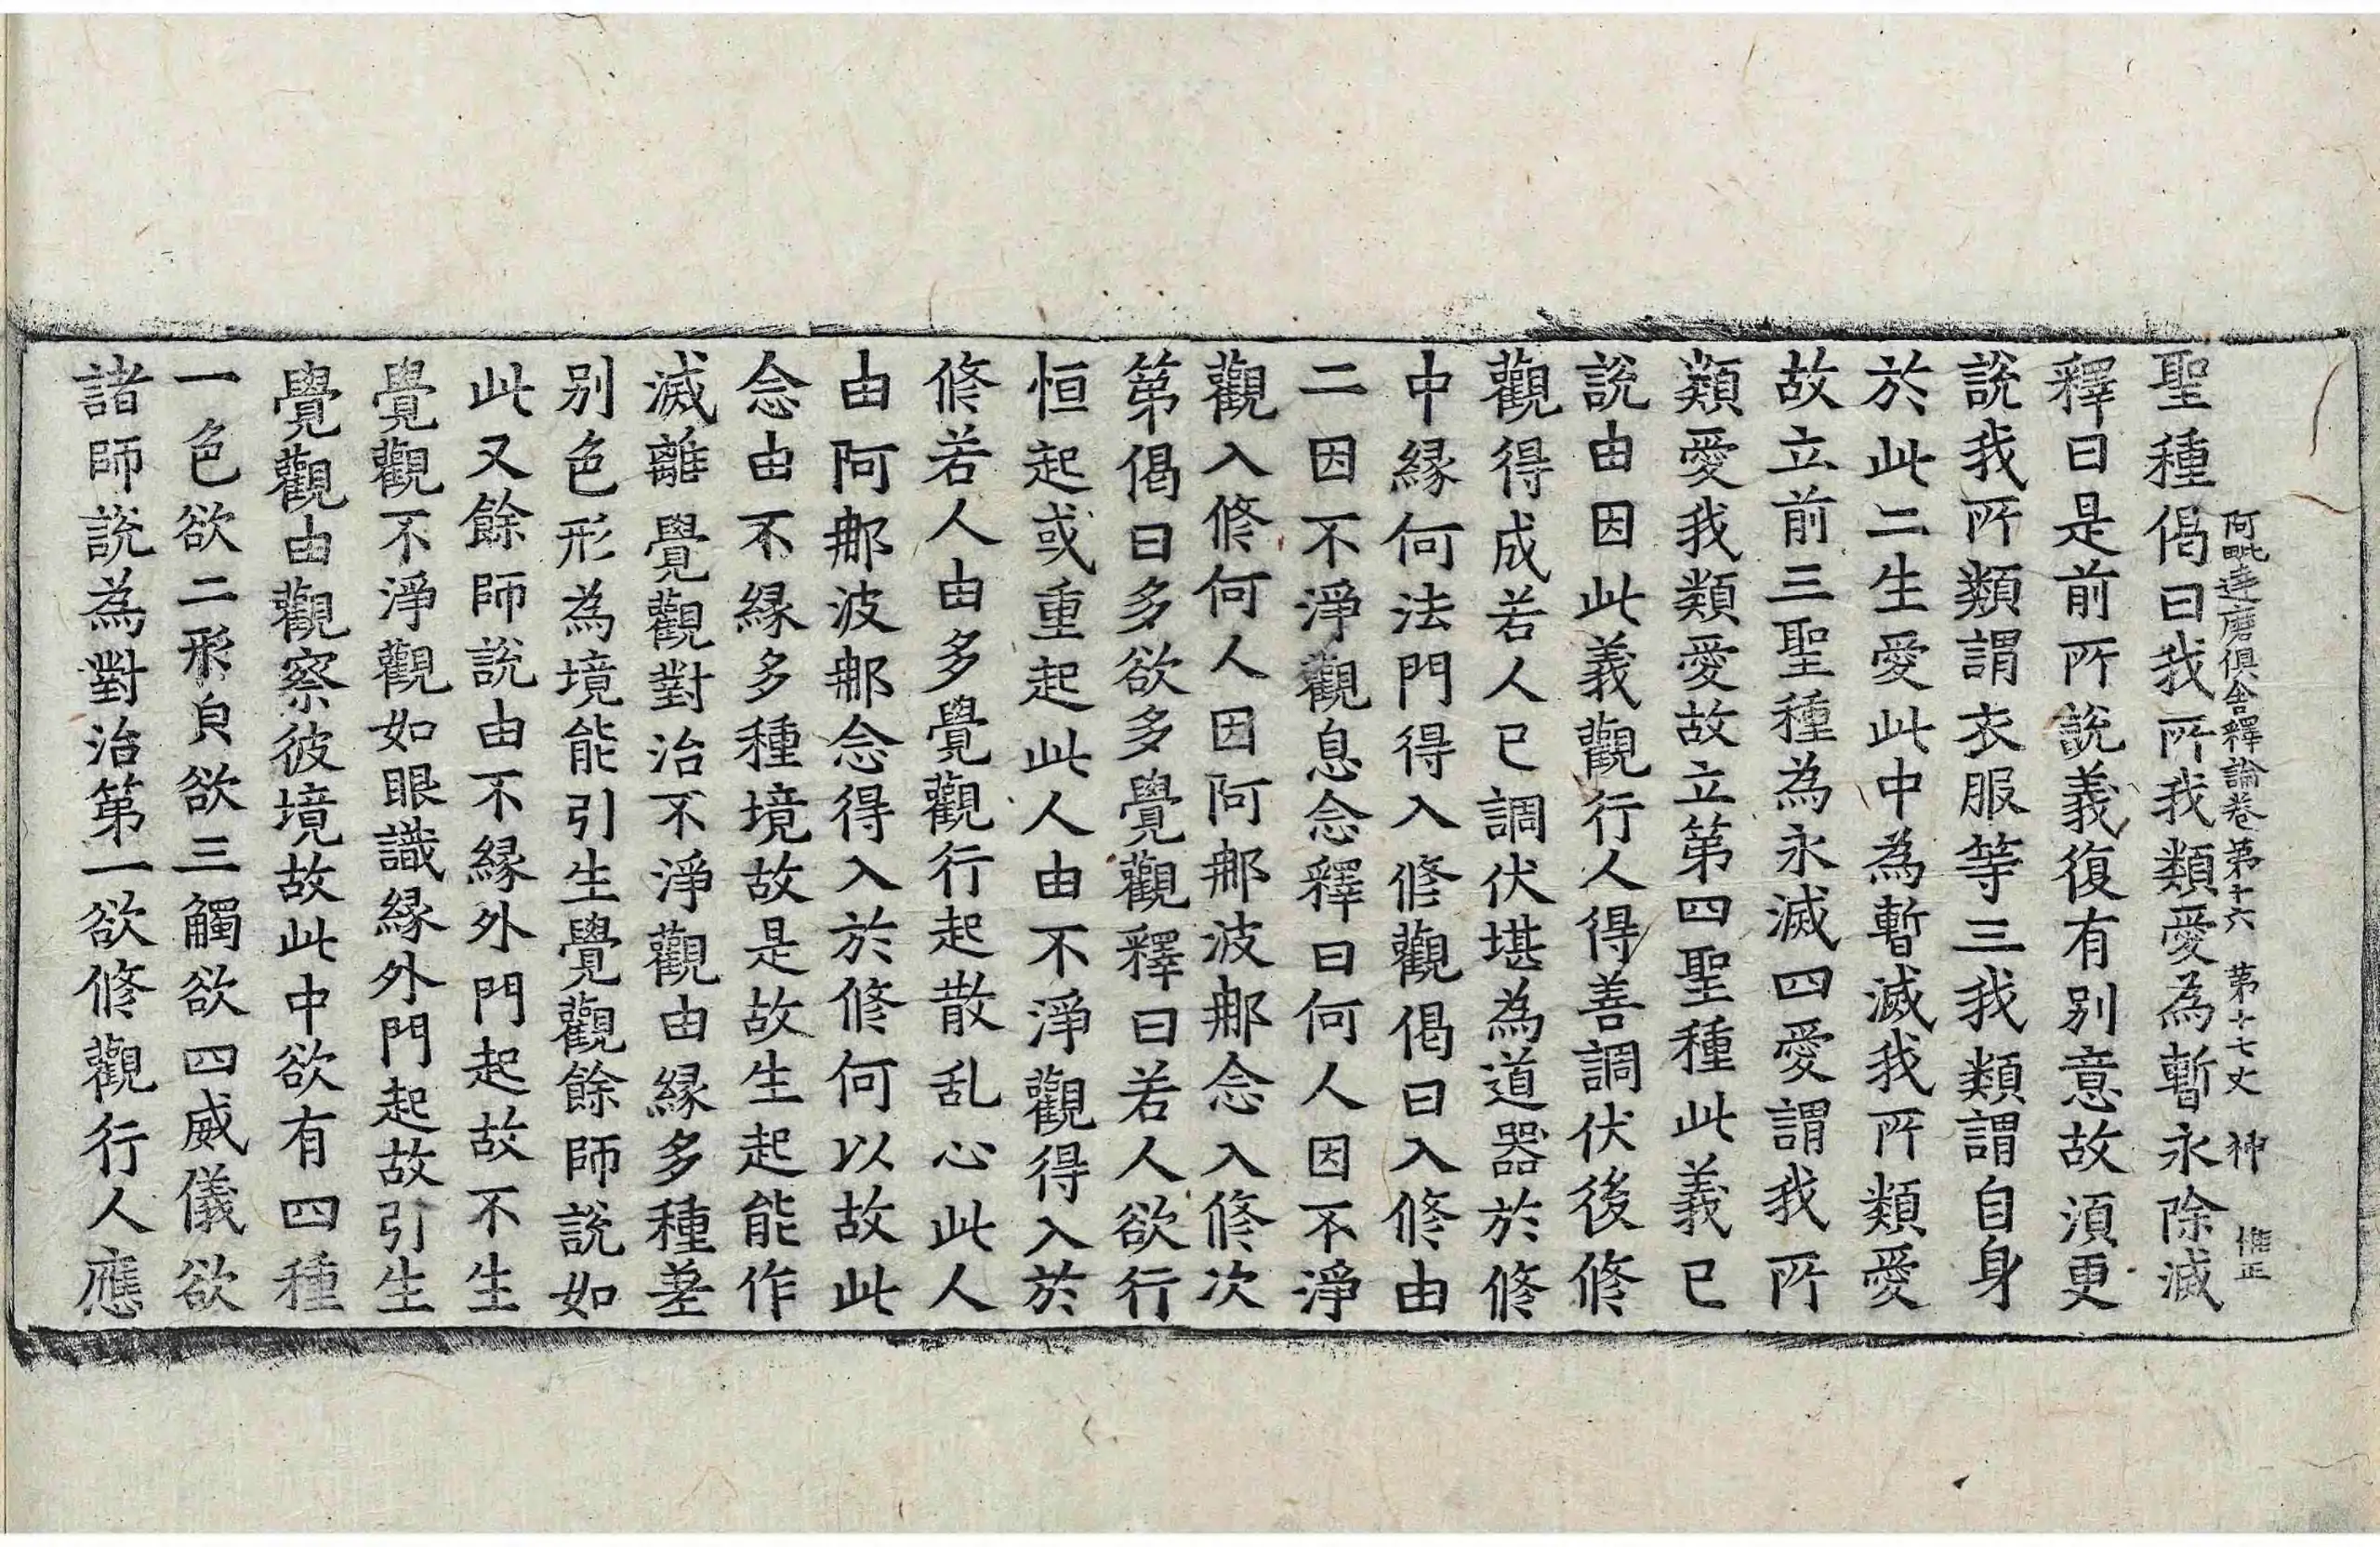 阿毗達磨俱舍釋論卷第十六 第十七丈 神 惟正
聖種偈曰我所我類愛為暫永除滅
釋曰是前所說義復有别意故湏更
說我所類謂衣服等三我類謂自身
於此二生愛此中為暫滅我所類愛
故立前三聖種為永滅四愛謂我所
類愛我類愛故立第四聖種此義已
說由因此義觀行人得善調伏後修
觀得成若人已調伏堪為道器於修
中緣何法門得入修觀偈曰入修由
二因不淨觀息念釋曰何人因不淨
觀入修何人因阿那波那念入修次
第偈曰多欲多覺觀釋曰若人欲行
恒起或重起此人由不淨觀得入於
修若人由多覺觀行起散乱心此人
由阿那波那念得入於修何以故此
念由不緣多種境故是故生起能作
滅離覺觀對治不淨觀由緣多種差
别色形為境能引生覺觀餘師說如
此又餘師說由不緣外門起故不生
覺觀不淨觀如眼識緣外門起故引生
覺觀由觀察彼境故此中欲有四種
一色欲二形皃欲三觸欲四威儀欲
諸師說為對治第一欲修觀行人應